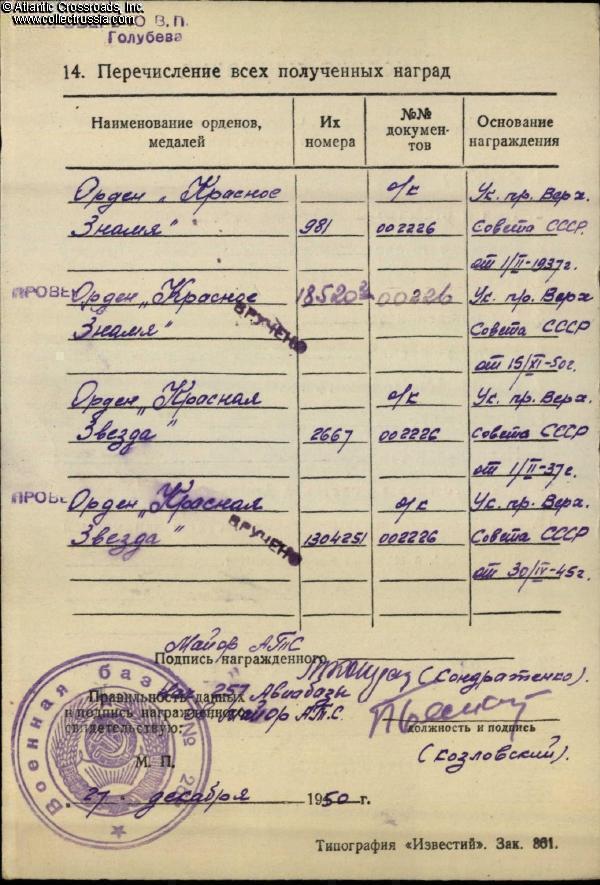 © Atlantic Crossroads, Inc.
www.collectrussia.com
В. П.
Голубева
14. Перечисление всех полученных наград
Наименование орденов, медалей
Их номера
№№ документов
Основание награждения
Орден „Красное о/к Ук. пр. Верх.
Знамя" 981 002226 Совета СССР.
от 1/II-1937г.
ПРОВЕ Орден „Красное 185202 002226 Ук. пр. Верх
Знамя" ВРУЧЕНО Совета СССР
от 15/XI-50г.
Орден „Красная о/к Ук. пр. Верх.
Звезда" 2667 002226 Совета СССР
от 1/II-37г.
ПРОВЕ Орден „Красная о/к Ук. пр. Верх.
Звезда" ВРУЧЕНО 1304251 002226 Совета СССР
от 30/IV-45г.
Майор АТС
Подпись награжденного (Кондратенко).
257 Авиабазы
Правильность данных
и подпись награжденного майор АТС.
свидетельствую:
должность и подпись
(Козловский).
М. П.
Военная база №
27 декабря 1950 г.
Типография «Известий». Зак. 861.